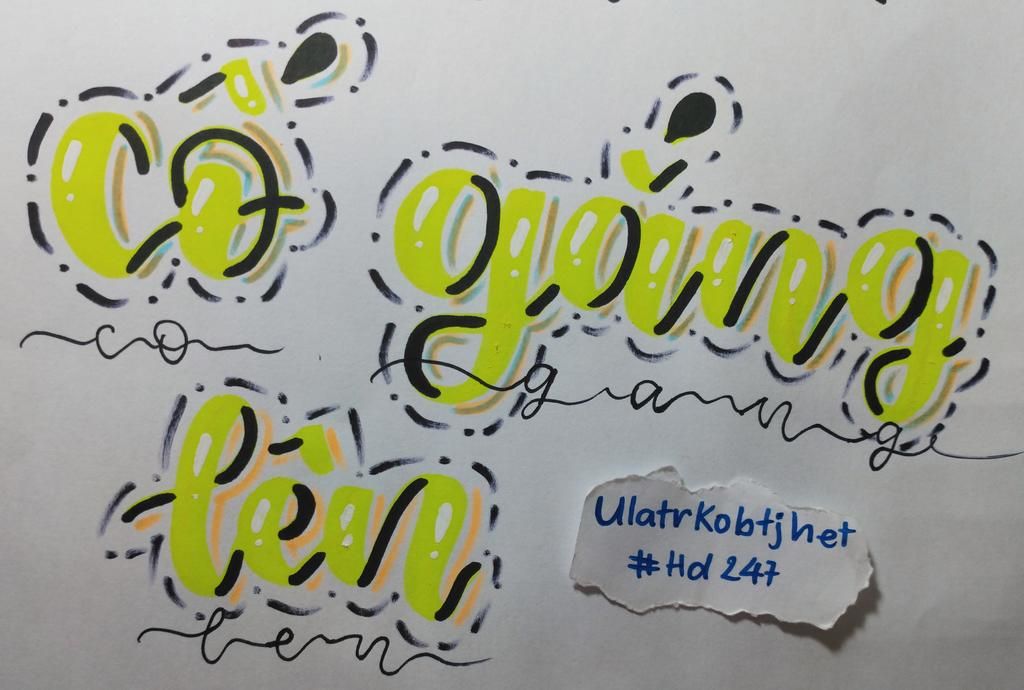 Cố gắng
co gang
lên
len
UlatrKobtjhet
#Hd 247